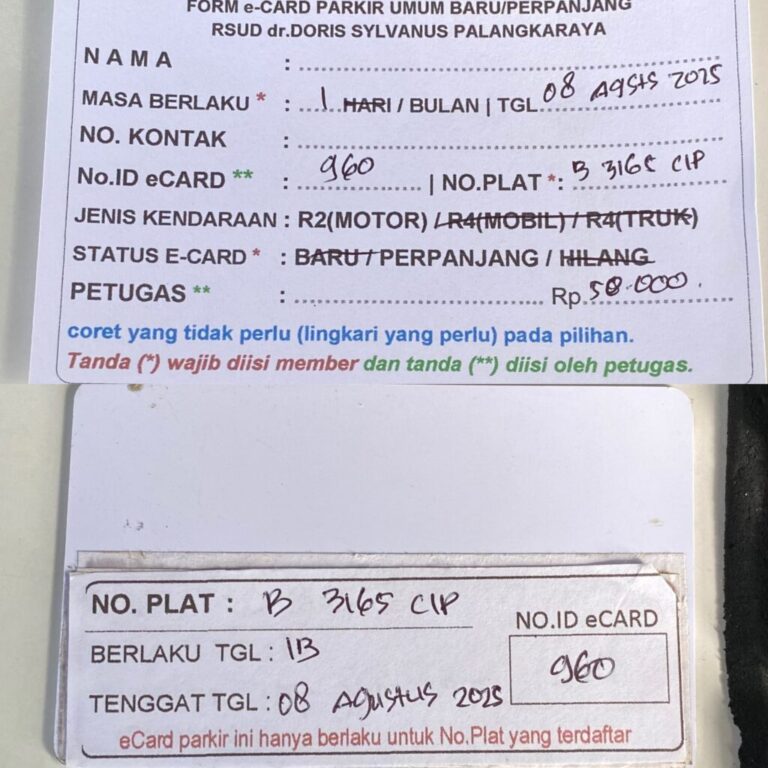 FORM e-CARD PARKIR UMUM BARU/PERPANJANG
RSUD dr.DORIS SYLVANUS PALANGKARAYA
NAMA :
MASA BERLAKU * : 1 HARI / BULAN | TGL 08 Agsts 2025
NO. KONTAK :
No.ID eCARD ** : 960 | NO.PLAT *: B 3165 CIP
JENIS KENDARAAN : R2(MOTOR) / R4(MOBIL) / R4(TRUK)
STATUS E-CARD * : BARU / PERPANJANG / HILANG
PETUGAS ** : Rp. 50.000.
coret yang tidak perlu (lingkari yang perlu) pada pilihan.
Tanda (*) wajib diisi member dan tanda (**) diisi oleh petugas.
NO. PLAT : B 3165 CIP
NO.ID eCARD
BERLAKU TGL : 1B
960
TENGGAT TGL : 08 Agustus 2025
eCard parkir ini hanya berlaku untuk No.Plat yang terdaftar